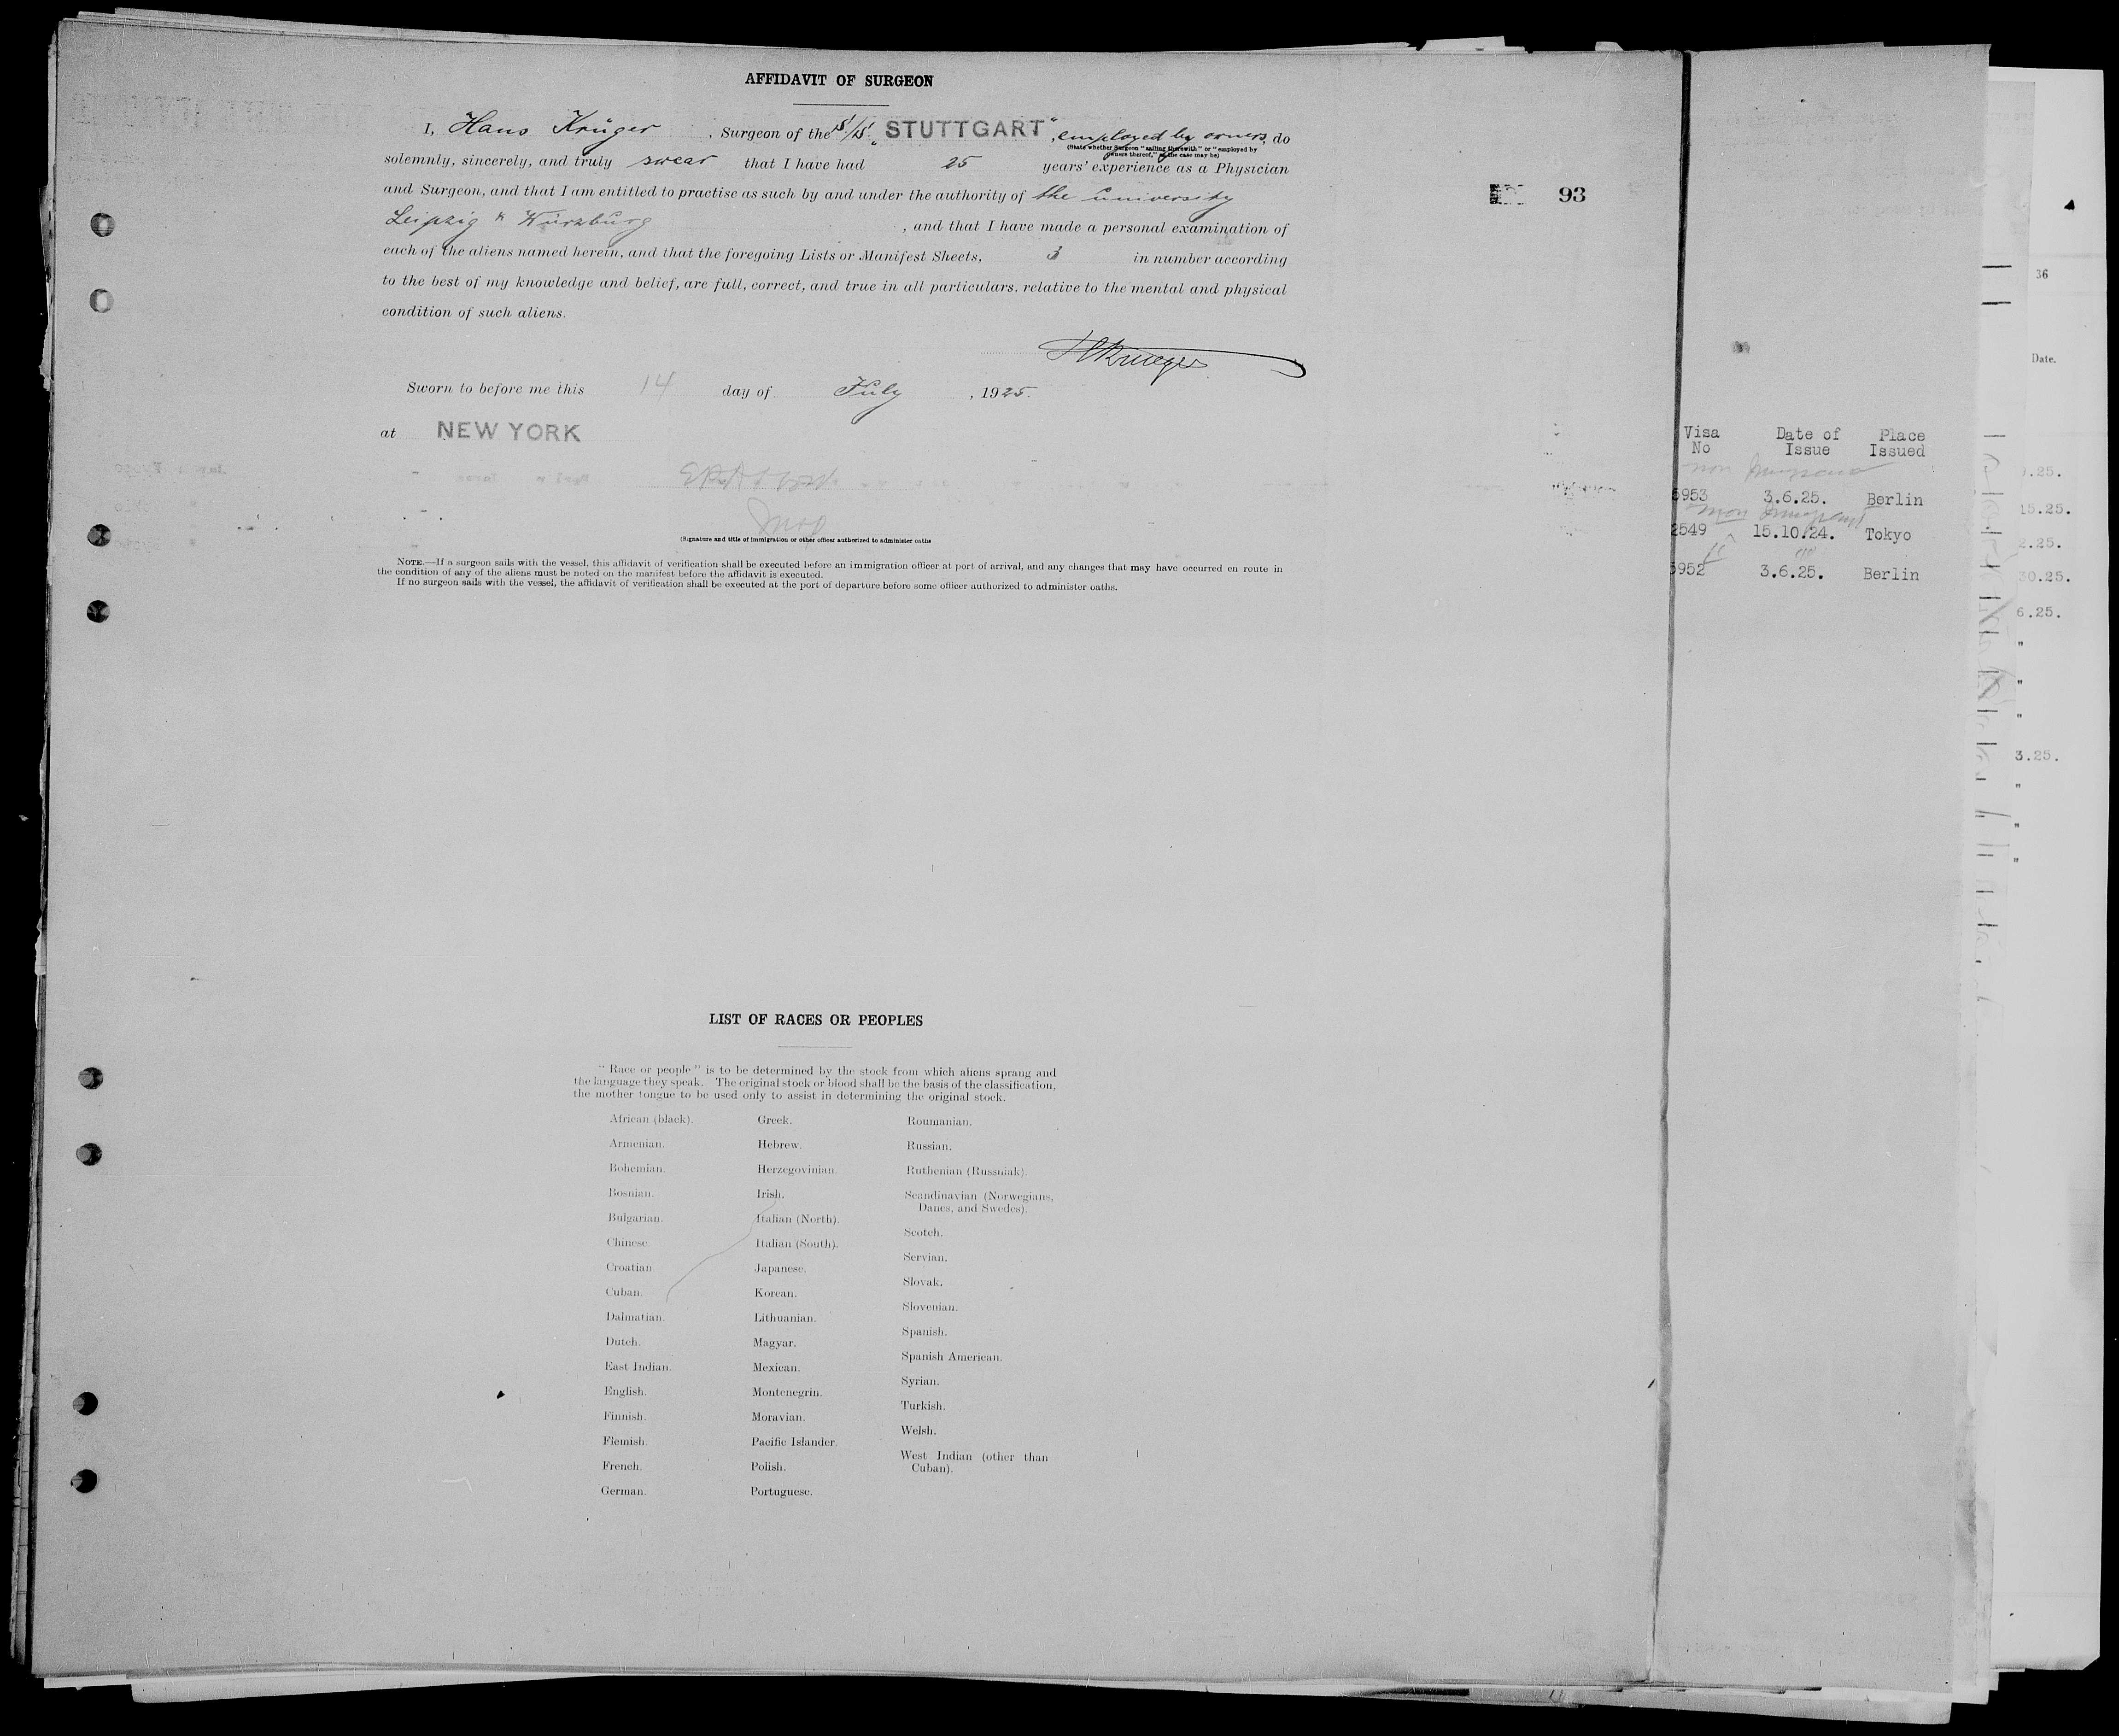 AFFIDAVIT OF SURGEON
I, Hans Krüger, Surgeon of the S/S. „STUTTGART“, employed by owners, do
(State whether Surgeon "sailing therewith" or "employed by
owners thereof," as the case may be)
solemnly, sincerely, and truly swear that I have had 25 years' experience as a Physician
and Surgeon, and that I am entitled to practise as such by and under the authority of the university
Leipzig & Würzburg, and that I have made a personal examination of
each of the aliens named herein, and that the foregoing Lists or Manifest Sheets, 3 in number according
to the best of my knowledge and belief, are full, correct, and true in all particulars, relative to the mental and physical
condition of such aliens.
HKrueger
Sworn to before me this 14 day of July, 1925.
at NEW YORK
(Signature and title of immigration or other officer authorized to administer oaths
NOTE.—If a surgeon sails with the vessel, this affidavit of verification shall be executed before an immigration officer at port of arrival, and any changes that may have occurred en route in
the condition of any of the aliens must be noted on the manifest before the affidavit is executed.
If no surgeon sails with the vessel, the affidavit of verification shall be executed at the port of departure before some officer authorized to administer oaths.
LIST OF RACES OR PEOPLES
"Race or people" is to be determined by the stock from which aliens sprang and
the language they speak. The original stock or blood shall be the basis of the classification,
the mother tongue to be used only to assist in determining the original stock.
African (black).
Armenian.
Bohemian.
Bosnian.
Bulgarian.
Chinese.
Croatian.
Cuban.
Dalmatian.
Dutch.
East Indian.
English.
Finnish.
Flemish.
French.
German.
Greek.
Hebrew.
Herzegovinian.
Irish.
Italian (North).
Italian (South).
Japanese.
Korean.
Lithuanian.
Magyar.
Mexican.
Montenegrin.
Moravian.
Pacific Islander.
Polish.
Portuguese.
Roumanian.
Russian.
Ruthenian (Russniak).
Scandinavian (Norwegians,
Danes, and Swedes).
Scotch.
Servian.
Slovak.
Slovenian.
Spanish.
Spanish American.
Syrian.
Turkish.
Welsh.
West Indian (other than
Cuban).
93
Visa Date of Place
No Issue Issued
non immigrant
5953 3.6.25. Berlin
non immigrant
2549 15.10.24. Tokyo
5952 3.6.25. Berlin
36
Date.
.25.
15.25.
2.25.
30.25.
6.25.
"
"
"
3.25.
"
"
"